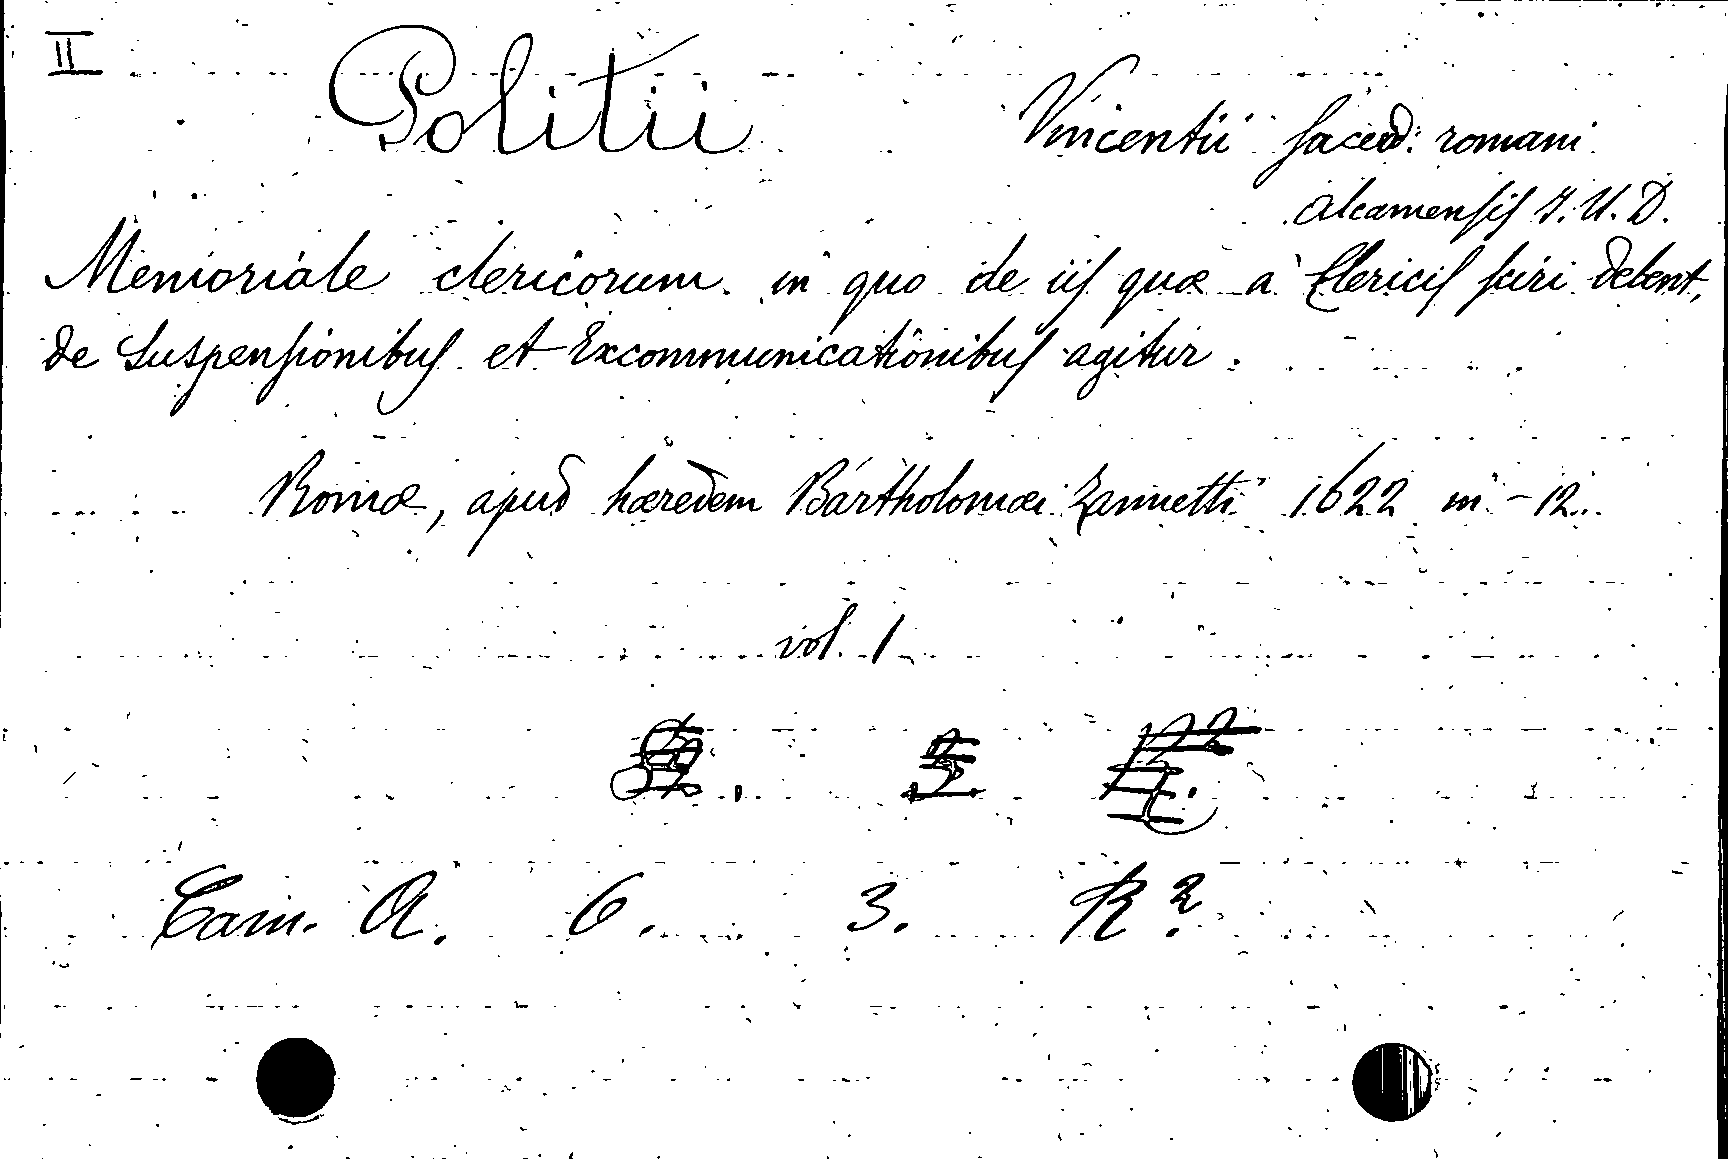 II
Politii Vincentii sacerd: romani
Alcamensis J. U. D.
Memoriale clericorum in quo de iis quæ a Clericis sciri debent,
de Suspensionibus et Excommunicationibus agitur.
Romæ, apud hæredem Bartholomæi Zannetti 1622 in-12.
vol. 1
Cam. A. 6. 3. R 2.